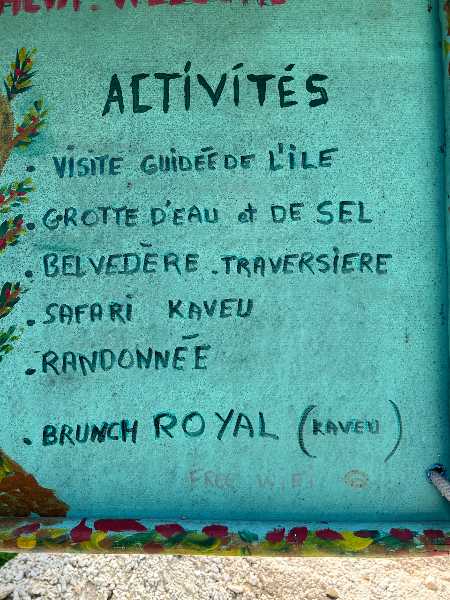 WELCOME
ACTIVITÉS
. VISITE GUIDÉE DE L'ILE
. GROTTE D'EAU et DE SEL
. BELVEDÈRE . TRAVERSIERE
. SAFARI KAVEU
. RANDONNÉE
. BRUNCH ROYAL (KAVEU)
FREE WiFi